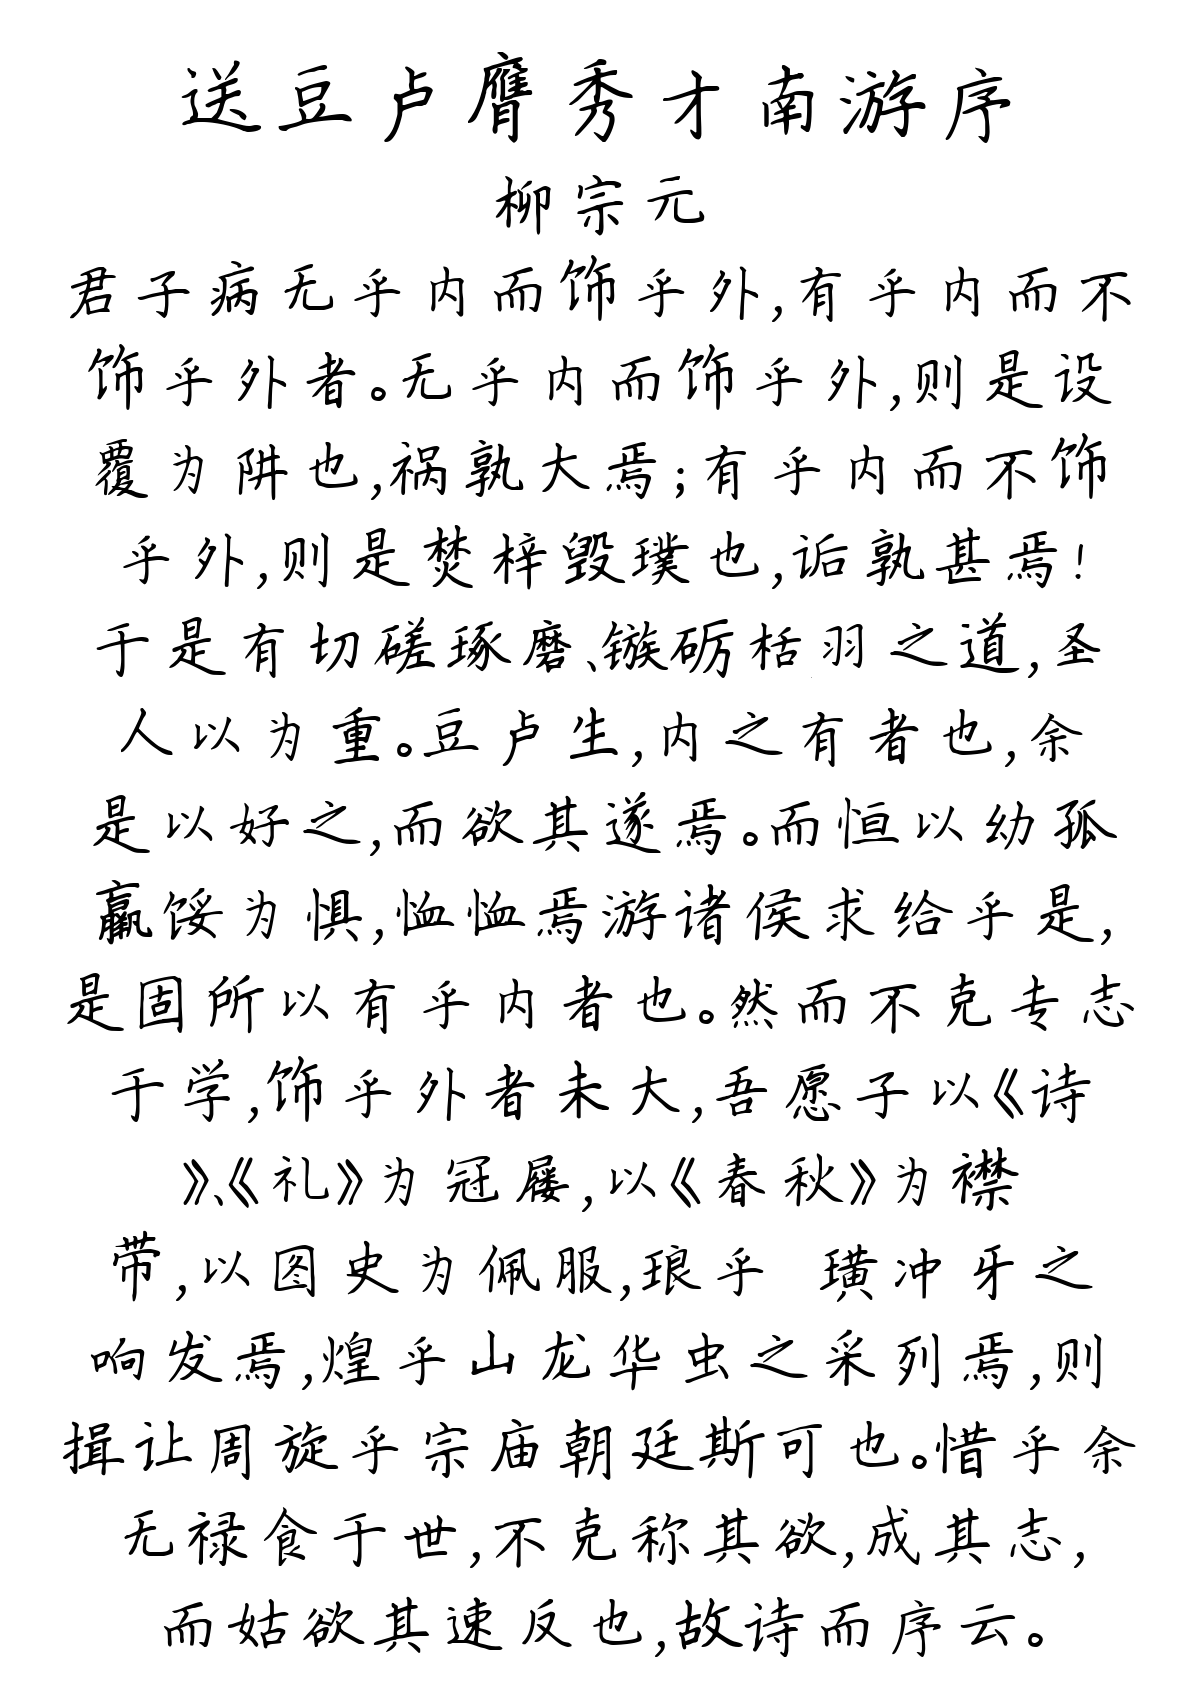 送豆卢膺秀才南游序
柳宗元
君子病无乎内而饰乎外,有乎内而不
饰乎外者。无乎内而饰乎外,则是设
覆为阱也,祸孰大焉;有乎内而不饰
乎外,则是焚梓毁璞也,诟孰甚焉!
于是有切磋琢磨、镞砺栝羽之道,圣
人以为重。豆卢生,内之有者也,余
是以好之,而欲其遂焉。而恒以幼孤
羸馁为惧,恤恤焉游诸侯求给乎是,
是固所以有乎内者也。然而不克专志
于学,饰乎外者未大,吾愿子以《诗
》、《礼》为冠屦,以《春秋》为襟
带,以图史为佩服,琅乎 璜冲牙之
响发焉,煌乎山龙华虫之采列焉,则
揖让周旋乎宗庙朝廷斯可也。惜乎余
无禄食于世,不克称其欲,成其志,
而姑欲其速反也,故诗而序云。